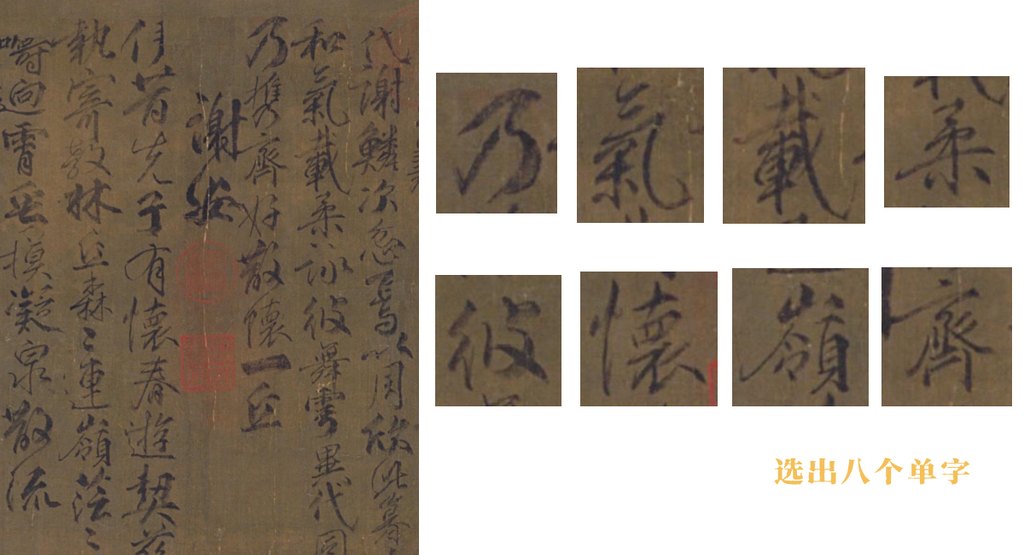 代謝鱗次忽焉以周欣此暮
和氣載柔詠彼舞雩異代同
乃携齊好散懷一丘
謝安
伊昔先子有懷春遊契茲
執寄敖林丘森〻連嶺茫〻
疇逈霄垂凝泉散流
乃 氣 載 柔
彼 懷 嶺 齊
选出八个单字